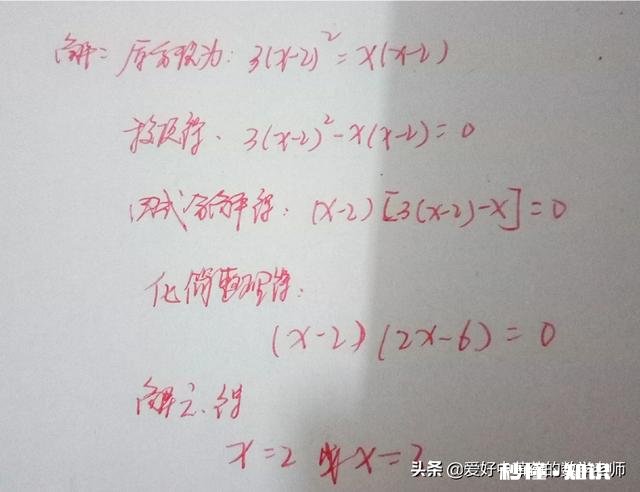 解:原方程为:3(x-2)²=x(x-2)
移项得、3(x-2)²-x(x-2)=0
因式分解得:(x-2)[3(x-2)-x]=0
化简整理得:
(x-2)(2x-6)=0
解之得
x=2或x=3
头条 @爱好
的数学老师
秒懂·知识